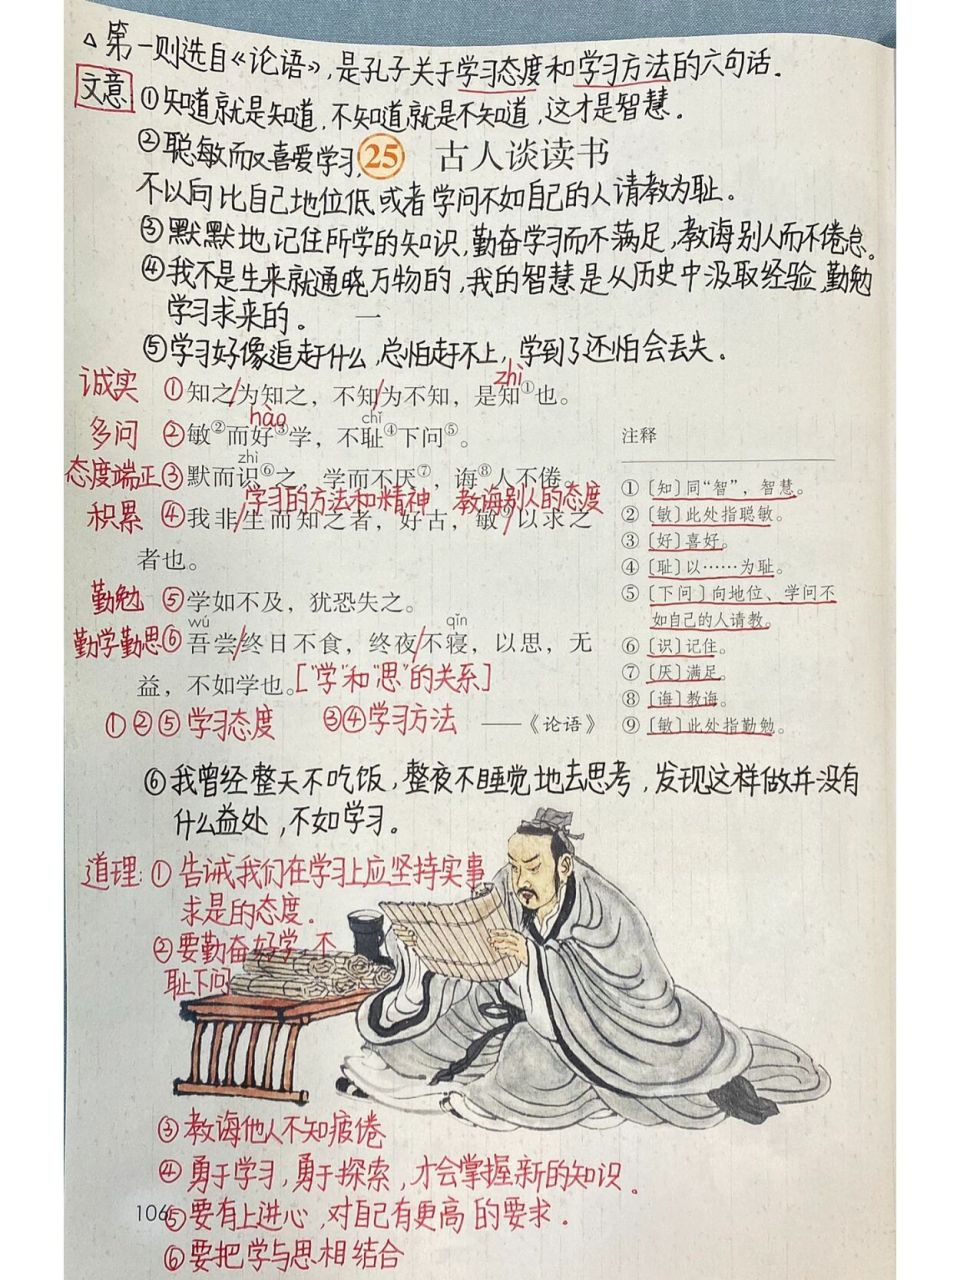 △第一则选自《论语》,是孔子关于学习态度和学习方法的六句话.
文意
①知道就是知道,不知道就是不知道,这才是智慧。
②聪敏而又喜爱学习,
25 古人谈读书
不以向比自己地位低或者学问不如自己的人请教为耻。
③默默地记住所学的知识,勤奋学习而不满足,教诲别人而不倦怠。
④我不是生来就通晓万物的,我的智慧是从历史中汲取经验,勤勉
学习求来的。
一
⑤学习好像追赶什么,总怕赶不上,学到了还怕会丢失。
zhì
诚实 ①知之/为知之,不知/为不知,是知①也。
hào chǐ
多问 ②敏②而好③学,不耻④下问⑤。
zhì
态度端正 ③默而识⑥之,学而不厌⑦,诲⑧人不倦。
学习的方法和精神 教诲别人的态度
积累 ④我非/生而知之者,好古,敏⑨/以求之
者也。
勤勉 ⑤学如不及,犹恐失之。
wú qǐn
勤学勤思 ⑥吾尝/终日不食,终夜/不寝,以思,无
益,不如学也。["学"和"思"的关系]
①②⑤学习态度 ③④学习方法 ——《论语》
注释
①〔知〕同“智”,智慧。
②〔敏〕此处指聪敏。
③〔好〕喜好。
④〔耻〕以……为耻。
⑤〔下问〕向地位、学问不
如自己的人请教。
⑥〔识〕记住。
⑦〔厌〕满足。
⑧〔诲〕教诲。
⑨〔敏〕此处指勤勉。
⑥我曾经整天不吃饭,整夜不睡觉地去思考,发现这样做并没有
什么益处,不如学习。
道理:①告诫我们在学习上应坚持实事
求是的态度.
②要勤奋好学,不
耻下问
③教诲他人不知疲倦
④勇于学习,勇于探索,才会掌握新的知识.
106
⑤要有上进心,对自己有更高的要求.
⑥要把学与思相结合